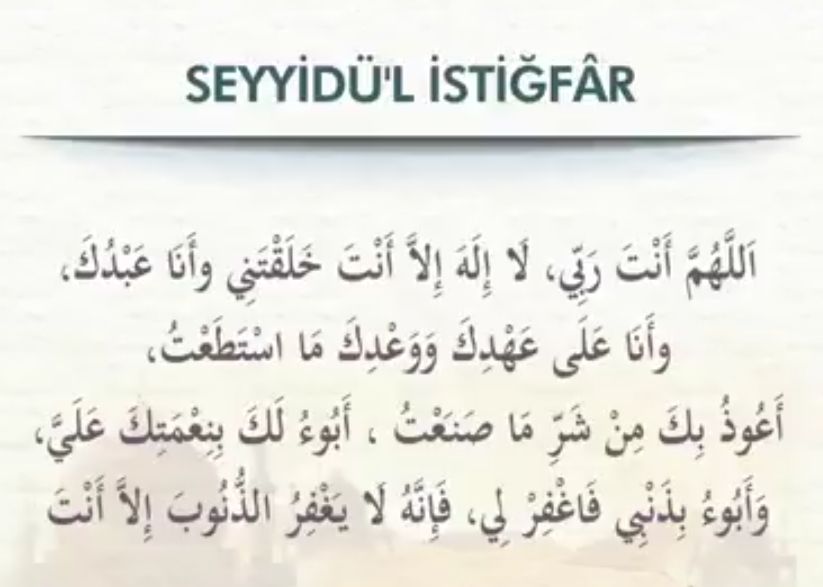 SEYYİDÜ'L İSTİĞFÂR
اَللَّهُمَّ أَنْتَ رَبِّي، لَا إِلَهَ إِلاَّ أَنْتَ خَلَقْتَنِي وأَنَا عَبْدُكَ،
وأَنَا عَلَى عَهْدِكَ وَوَعْدِكَ مَا اسْتَطَعْتُ،
أَعُوذُ بِكَ مِنْ شَرِّ مَا صَنَعْتُ ، أَبُوءُ لَكَ بِنِعْمَتِكَ عَلَيَّ،
وَأَبُوءُ بِذَنْبِي فَاغْفِرْ لِي، فَإِنَّهُ لَا يَغْفِرُ الذُّنُوبَ إِلاَّ أَنْتَ